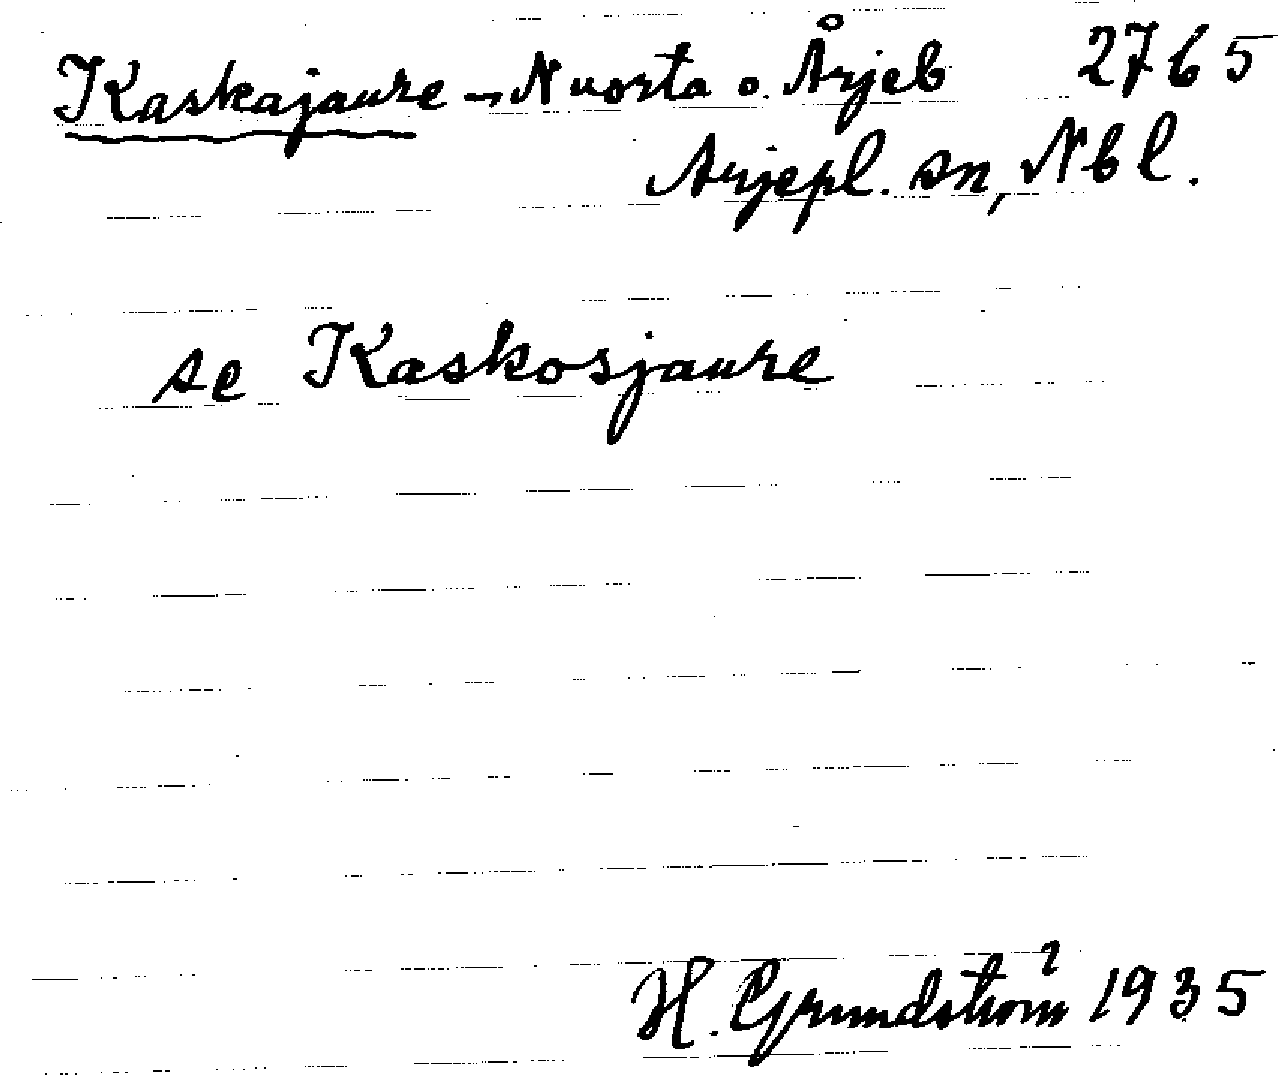 Kaskajaure, Nuorta o. Årjeb 2765
Arjepl. sn, Nbl.
se Kaskosjaure
H. Grundström 1935